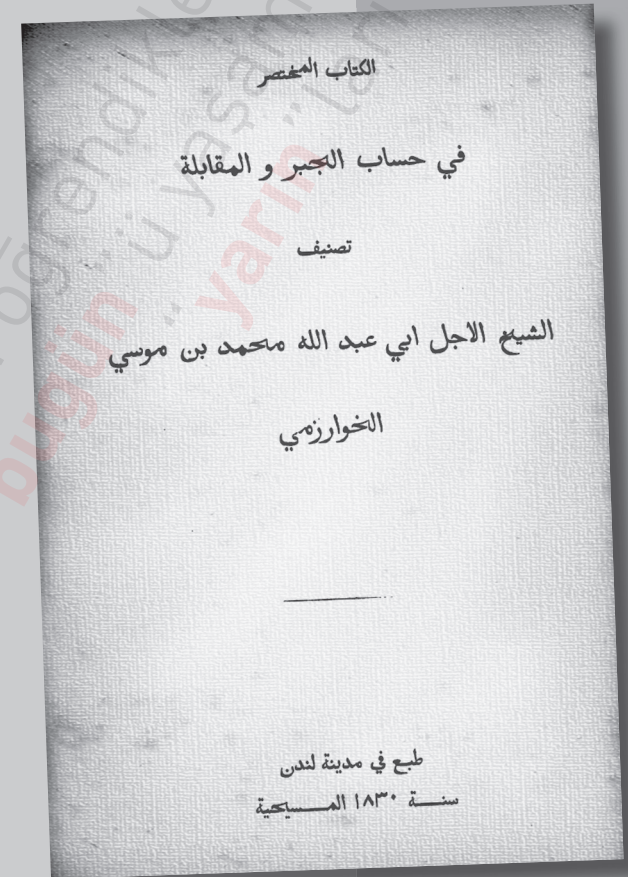 الكتاب المختصر
في حساب الجبر و المقابلة
تصنيف
الشيخ الاجل ابي عبد الله محمد بن موسي
الخوارزمي
طبع في مدينة لندن
سنة ١٨٣٠ المسيحية
öğrendikle
bugün
ü yaşam
yarın